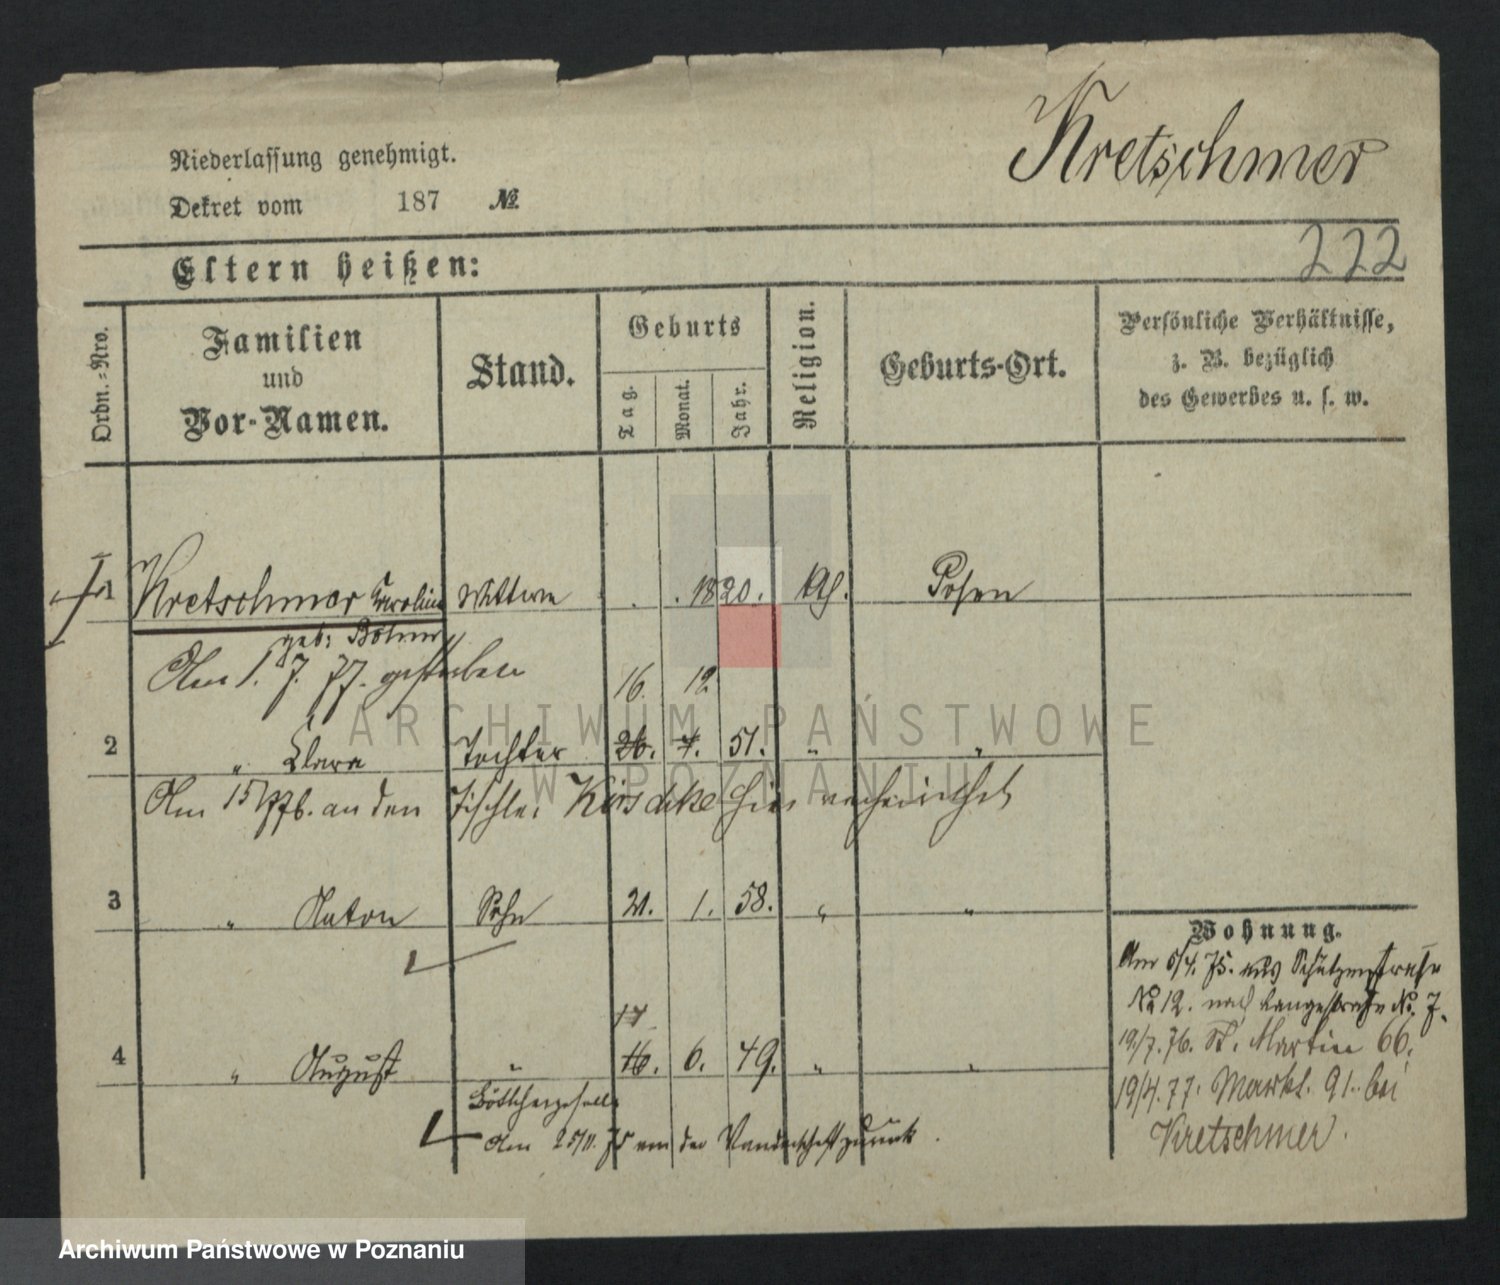 Kretschmer
Niederlassung genehmigt.
Dekret vom 187 №
222
Eltern heißen:
Ordn.-Nro.
Familien
und
Vor-Namen.
Stand.
Geburts
Tag.
Monat.
Jahr.
Religion.
Geburts-Ort.
Persönliche Verhältnisse,
z. B. bezüglich
des Gewerbes u. s. w.
1 Kretschmer Caroline Wittwe 1820. Posen
geb: Böhm
Am 1. 7. 77. gestorben
16. 12
2 " Clara Tochter 26. 7. 51. " "
Am 15 76. an den Tischler hier verheirathet
3 " Anton Sohn 21. 1. 58. " "
17
4 " August " 16. 6. 49. " "
Böttchergeselle
Am 25/11. 75 von der Wanderschaft zurück.
Wohnung.
Am 5/4. 75. aus Schützenstraße
No 12. nach Langestraße No. 7.
19/7. 76. St. Martin 66.
19/4. 77. Markt. 91. bei
Kretschmer.
ARCHIWUM PAŃSTWOWE
W POZNANIU
Archiwum Państwowe w Poznaniu